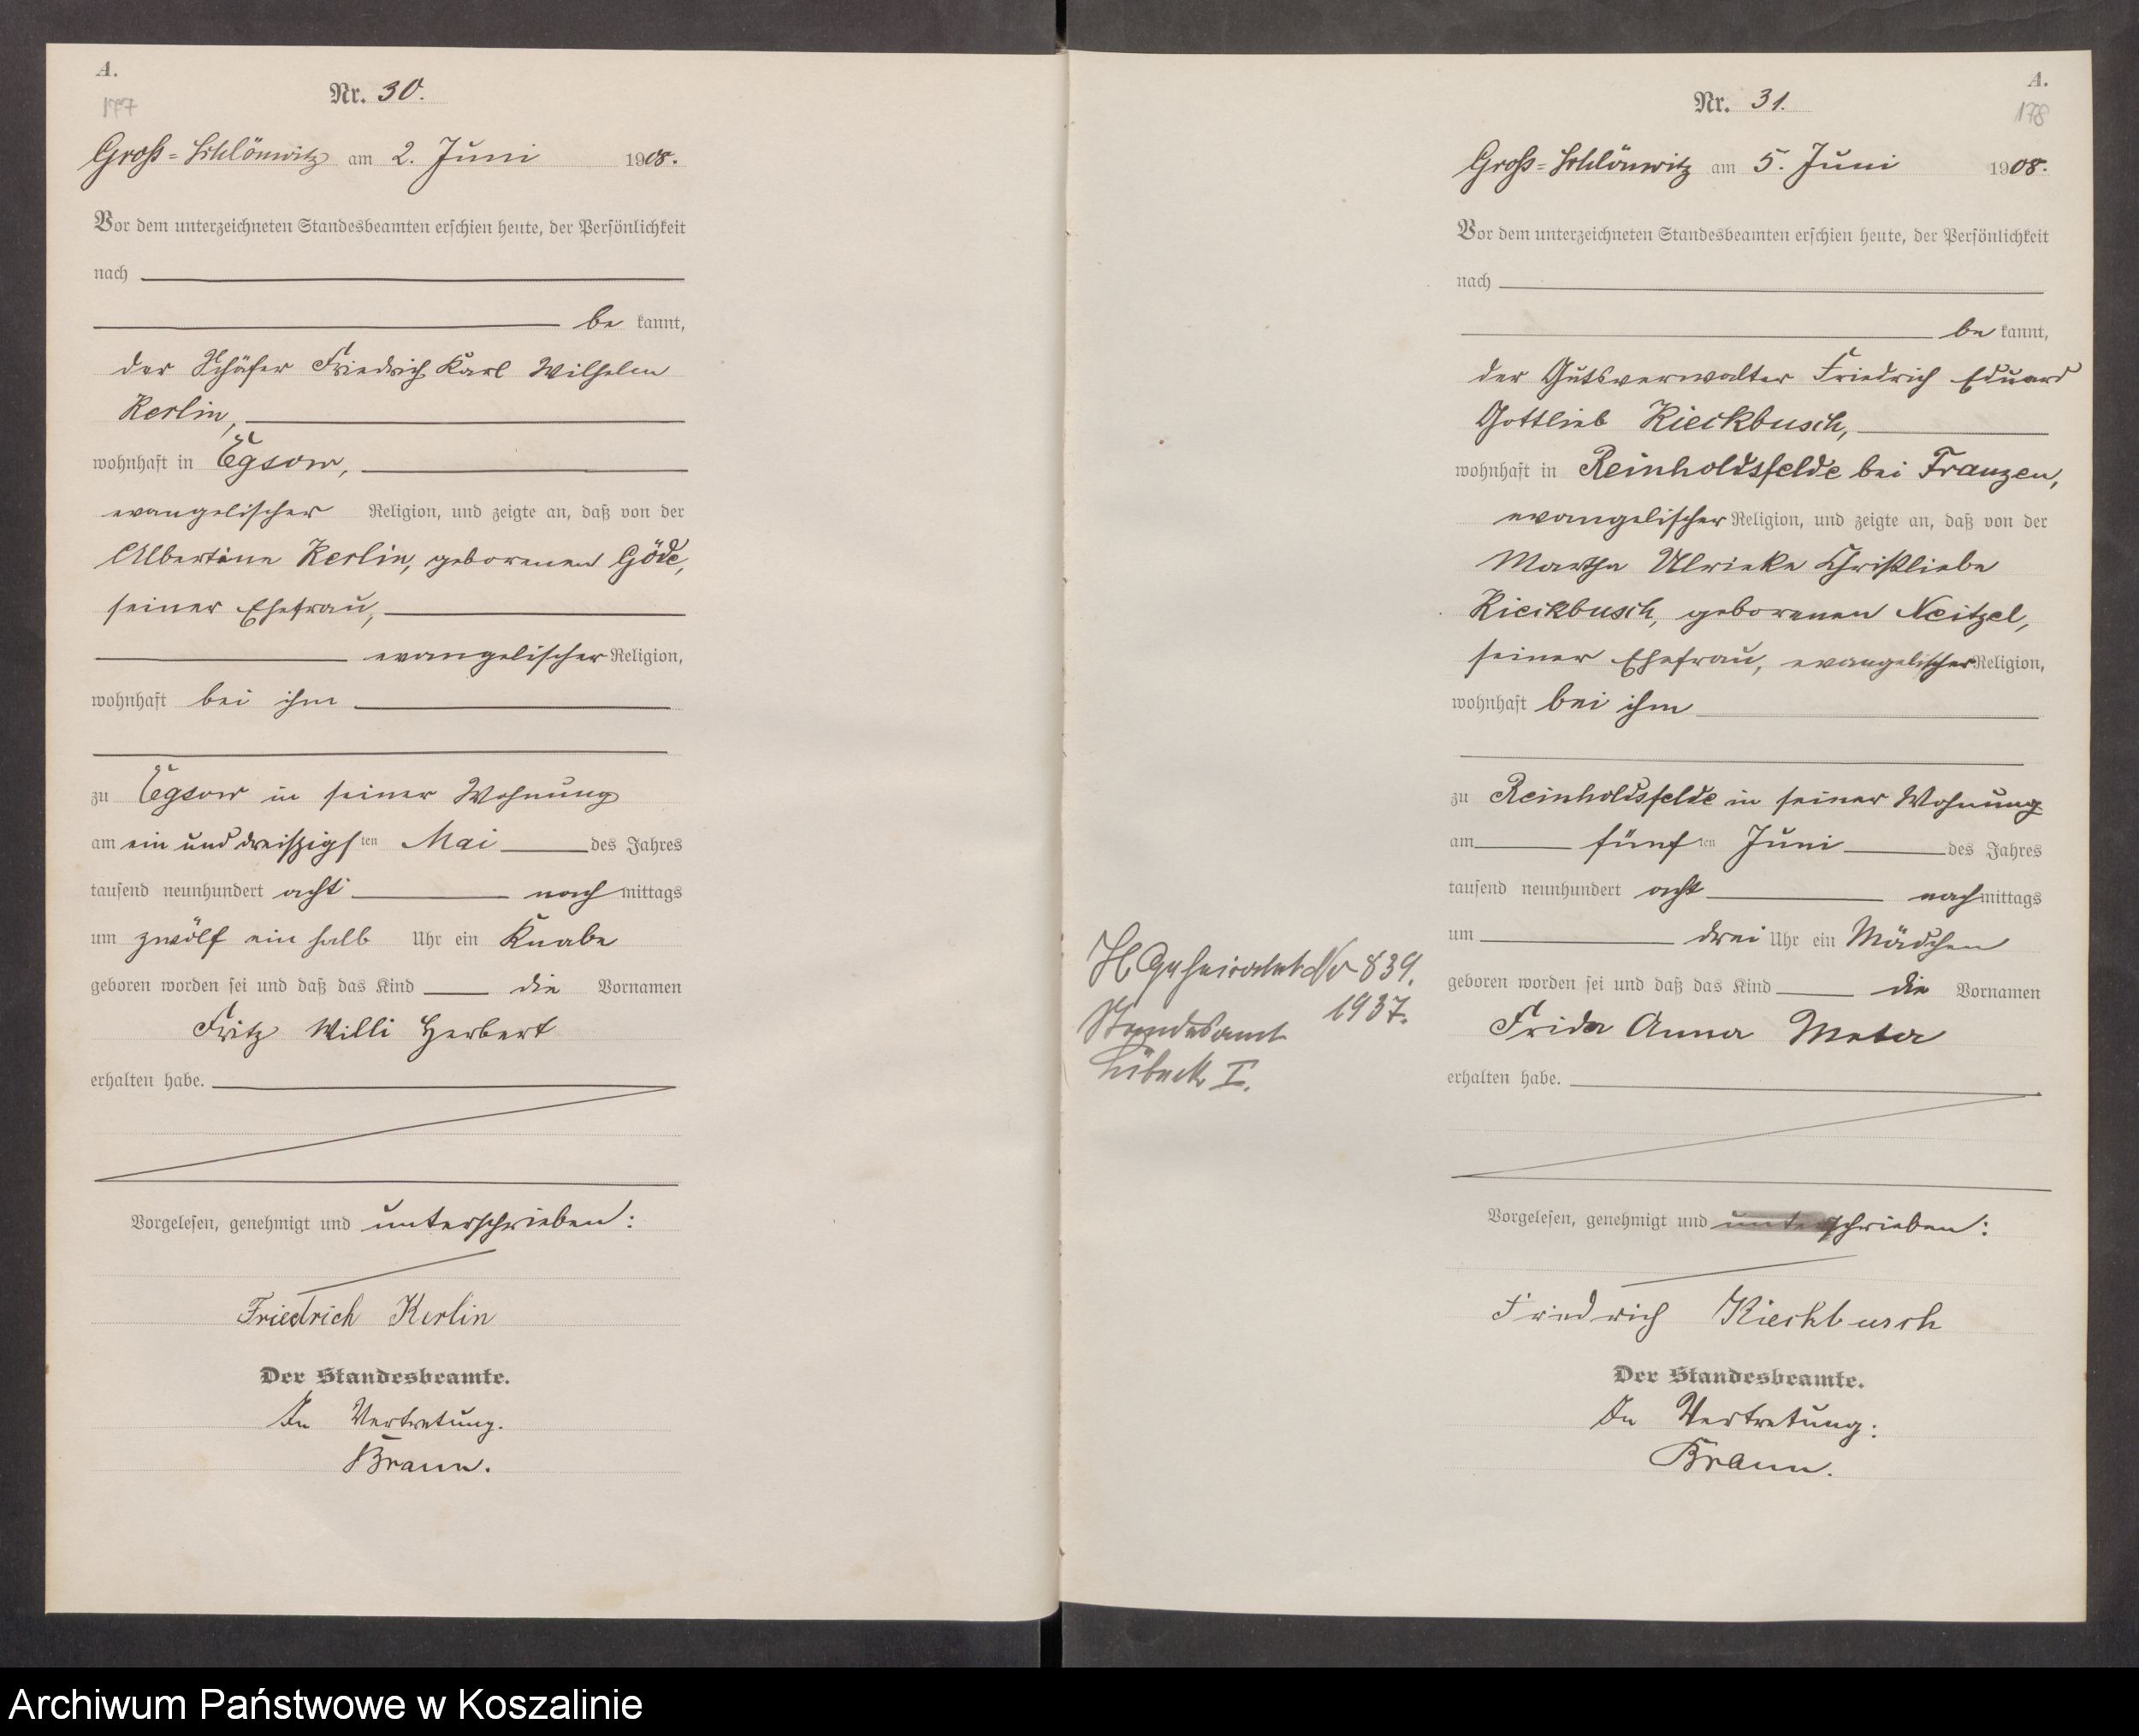 A.
177
Nr. 30.
Groß-Schlönwitz am 2. Juni 1908.
Vor dem unterzeichneten Standesbeamten erschien heute, der Persönlichkeit
nach
be kannt,
der Schäfer Friedrich Karl Wilhelm
Kerlin,
wohnhaft in Egsow,
evangelischer Religion, und zeigte an, daß von der
Albertine Kerlin, geborenen Göde,
seiner Ehefrau,
evangelischer Religion,
wohnhaft bei ihm
zu Egsow in seiner Wohnung
am ein und dreiszigsten Mai des Jahres
tausend neunhundert acht nach mittags
um zwölf ein halb Uhr ein Knabe
geboren worden sei und daß das Kind die Vornamen
Fritz Willi Herbert
erhalten habe.
Vorgelesen, genehmigt und unterschrieben:
Friedrich Kerlin
Der Standesbeamte.
In Vertretung.
Braun.
A.
178
Nr. 31.
Groß-Schlönwitz am 5. Juni 1908.
Vor dem unterzeichneten Standesbeamten erschien heute, der Persönlichkeit
nach
be kannt,
der Gutsverwalter Friedrich Eduard
Gottlieb Kieckbusch,
wohnhaft in Reinholdsfelde bei Franzen,
evangelischer Religion, und zeigte an, daß von der
Martha Ulrieke Christliebe
Kieckbusch, geborenen Neitzel,
seiner Ehefrau, evangelischer Religion,
wohnhaft bei ihm
zu Reinholdsfelde in seiner Wohnung
am fünften Juni des Jahres
tausend neunhundert acht nachmittags
um drei Uhr ein Mädchen
geboren worden sei und daß das Kind die Vornamen
Frida Anna Meta
erhalten habe.
Vorgelesen, genehmigt und unterschrieben:
Friedrich Kieckbusch
Der Standesbeamte.
In Vertretung:
Braun.
Geheiratet Nr 839.
1937.
Standesamt
Lübeck I.
Archiwum Państwowe w Koszalinie